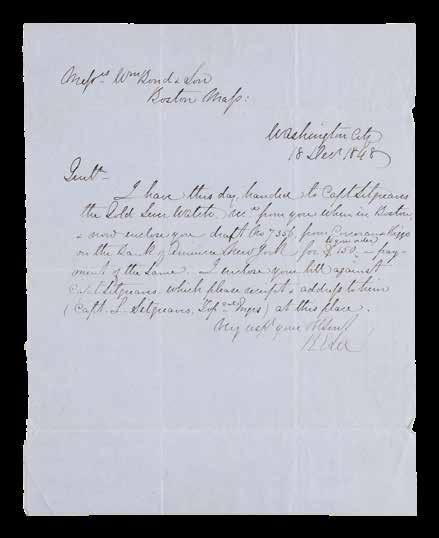 Messrs Wm Bond & Son
Boston Mass:
Washington City
18 Decr 1848
Gentn
I have this day handed to Capt Sitgreaves
the Gold Lever Watch, recd from you when in Boston,
& now enclose you draft No 7350, from Corcoran & Riggs
to your order
on the Bank of America New York for $150 - pay-
ment of the same. I enclose your bill against
Capt Sitgreaves which please receipt & address to him
(Capt. L. Sitgreaves, Topl Engrs) at this place.
Very respy your obt
R E Lee